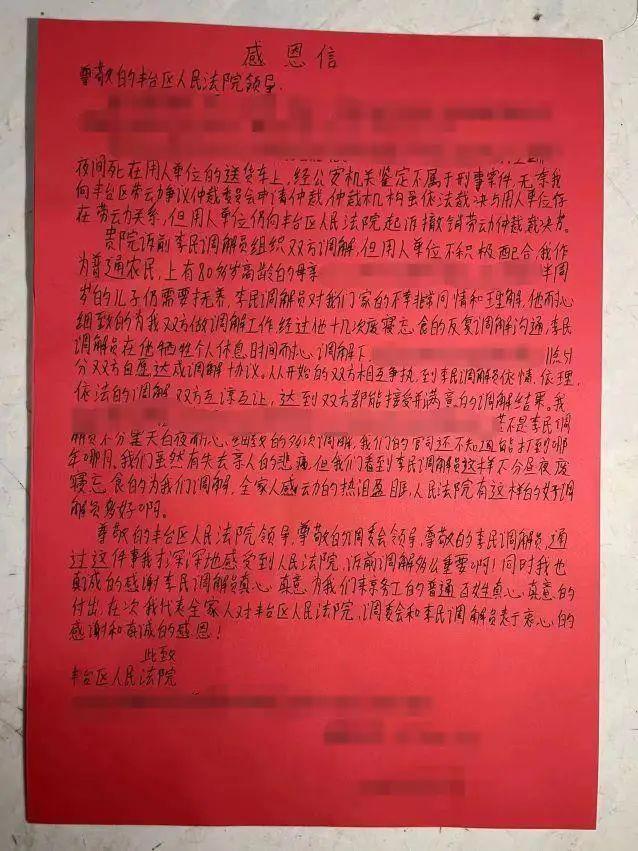 感恩信
尊敬的丰台区人民法院领导.
夜间死在用人单位的送货车上，经公安机关鉴定不属于刑事案件，无奈我
向丰台区劳动争议仲裁委员会申请仲裁，仲裁机构虽依法裁决与用人单位存
在劳动关系，但用人单位仍向丰台区人民法院起诉撤销劳动仲裁裁决书。
贵院诉前李民调解员组织双方调解，但用人单位不积极配合，我作
为普通农民，上有80多岁高龄的母亲 半周
岁的儿子仍需要扶养，李民调解员对我们家的不幸非常同情和理解，他耐心
细致的为我双方做调解工作，经过他十几次废寝忘食的反复调解沟通，李民
调解员在他牺牲个人休息时间耐心调解下， 11点51
分双方自愿达成调解协议。从开始的双方相互争执，到李民调解员依情、依理，
依法的调解双方互谅互让，达到双方都能接受并满意的调解结果。我
若不是李民调
解员不分黑天白夜耐心，细致的多次调解，我们的官司还不知道能打到哪
年哪月，我们虽然有失去亲人的悲痛，但我们看到李民调解员这样不分昼夜废
寝忘食的为我们调解，全家人感动的热泪盈眶，人民法院有这样的好调
解员真好啊。
尊敬的丰台区人民法院领导，尊敬的调委会领导，尊敬的李民调解员，通
过这件事我才深深地感受到人民法院，诉前调解多么重要啊！同时我也
真诚的感谢李民调解员真心真意为我们来京务工的普通百姓真心真意的
付出，在次我代表全家人对丰台区人民法院，调委会和李民调解员表于衷心的
感谢和真诚的感恩！
此致
丰台区人民法院